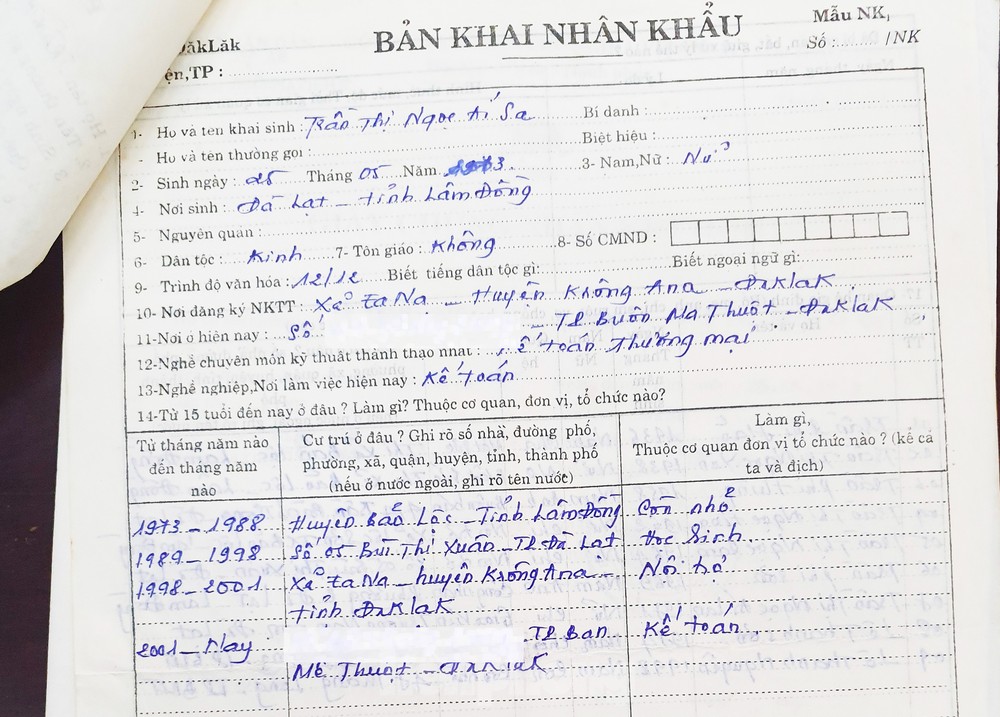 ĐăkLăk
BẢN KHAI NHÂN KHẨU
Mẫu NK,
ện,TP :
Số: /NK
1- Họ và tên khai sinh : Trần Thị Ngọc Ái Sa Bí danh :
- Họ và tên thường gọi : Biệt hiệu :
2- Sinh ngày : 25 Tháng 05 Năm 3- Nam,Nữ : Nữ
4- Nơi sinh : Đà Lạt - Tỉnh Lâm Đồng
5- Nguyên quán :
6- Dân tộc : Kinh 7- Tôn giáo : Không 8- Số CMND :
9- Trình độ văn hóa : 12/12 Biết tiếng dân tộc gì: Biết ngoại ngữ gì:
10- Nơi đăng ký NKTT : Xã Ea Na - Huyện Krông Ana - ĐăkLăk
11-Nơi ở hiện nay : Số - TP Buôn Ma Thuột - ĐăkLăk
12-Nghề chuyên môn kỹ thuật thành thạo nhất : Kế toán Thương mại
13-Nghề nghiệp,Nơi làm việc hiện nay : Kế toán
14-Từ 15 tuổi đến nay ở đâu ? Làm gì? Thuộc cơ quan, đơn vị, tổ chức nào?
Từ tháng năm nào
đến tháng năm
nào
Cư trú ở đâu ? Ghi rõ số nhà, đường phố,
phường, xã, quận, huyện, tỉnh, thành phố
(nếu ở nước ngoài, ghi rõ tên nước)
Làm gì,
Thuộc cơ quan đơn vị tổ chức nào ? (kể cả
ta và địch)
1973 - 1988 Huyện Bảo Lộc - Tỉnh Lâm Đồng Còn nhỏ
1989 - 1998 Số 05 Bùi Thị Xuân - TP Đà Lạt Học Sinh
1998 - 2001 Xã Ea Na - huyện Krông Ana - Nội trợ
tỉnh ĐăkLăk
2001 - Nay TP Ban Kế toán
Mê Thuột -